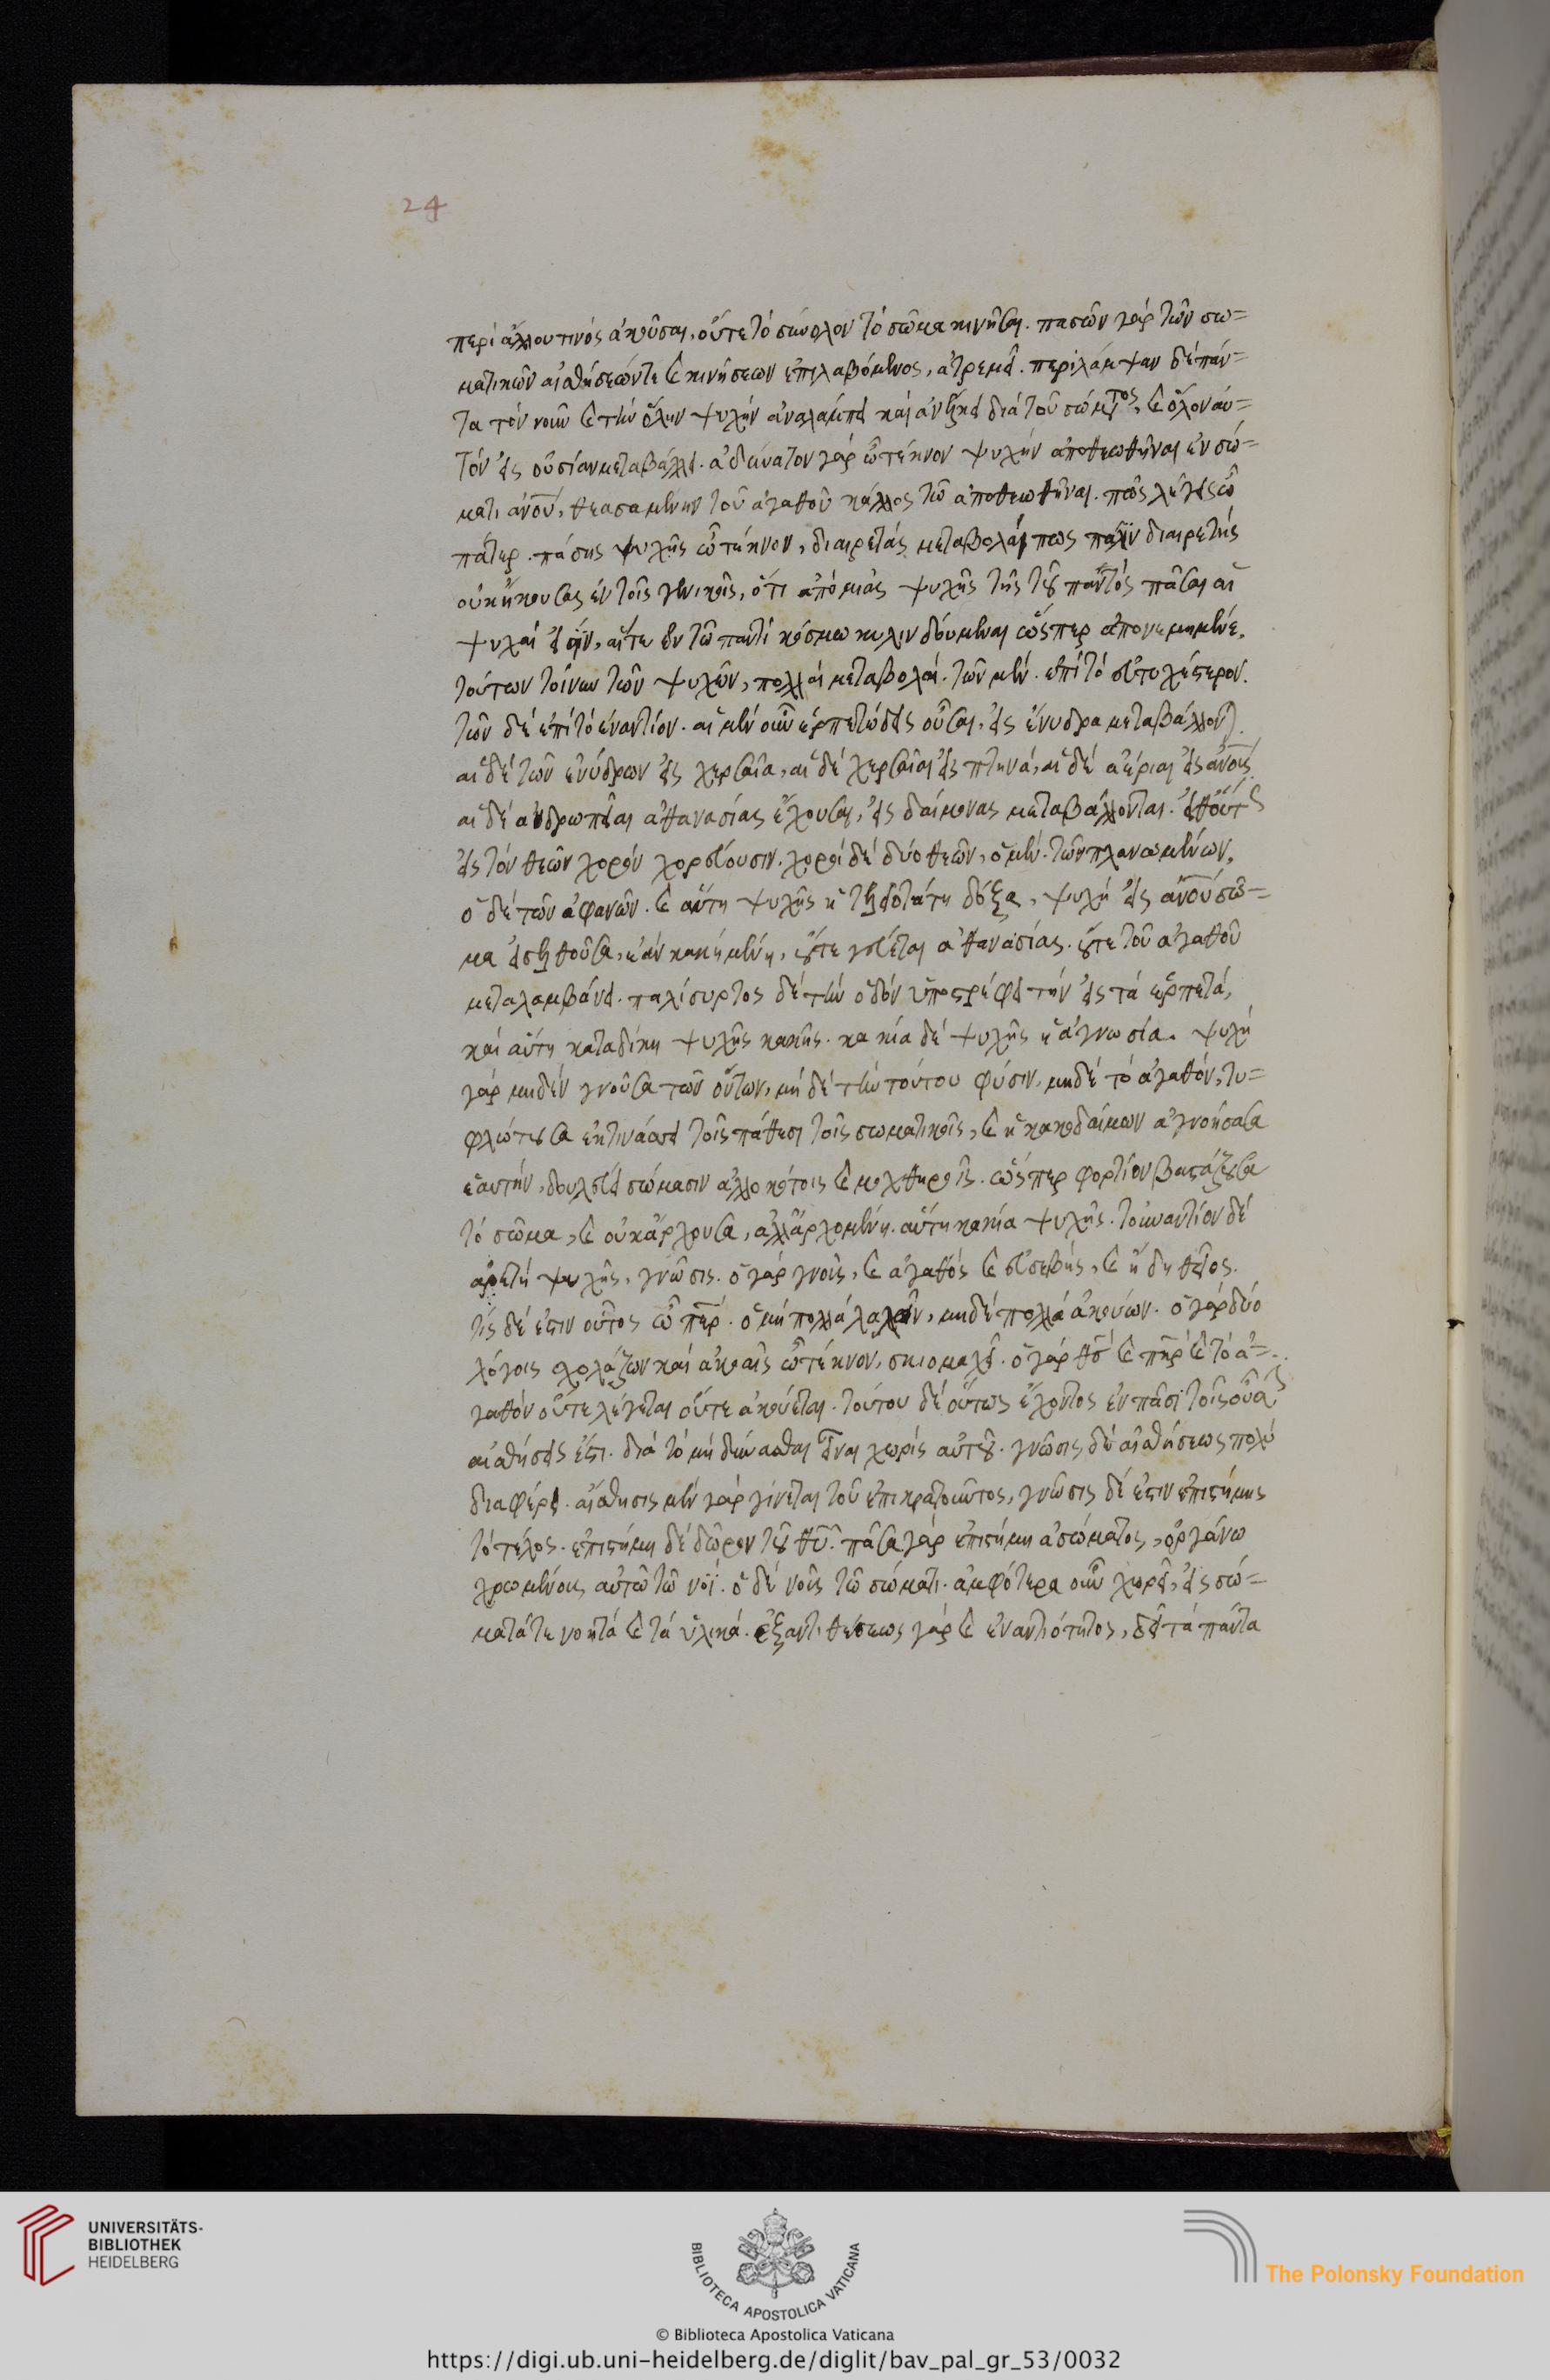 24
περὶ ἄλλου τινὸς ἀκοῦσαι, οὔτε τὸ σύνολον τὸ σῶμα κινῆσαι. πασῶν γὰρ τῶν σω=
ματικῶν αἰσθήσεών τε καὶ κινήσεων ἐπιλαβόμενος, ἀτρεμεῖ. περιλάμψαν δὲ πάν=
τα τὸν νοῦν καὶ τὴν ὅλην ψυχὴν ἀναλάμπει καὶ ἀνέλκει διὰ τοῦ σώματος, καὶ ὅλον αὐ=
τὸν εἰς οὐσίαν μεταβάλλει. ἀδύνατον γὰρ ὦ τέκνον ψυχὴν ἀποθεωθῆναι ἐν σώ=
ματι ἀνου, θεασαμένην τοῦ ἀγαθοῦ κάλλος τῶ ἀποθεωθῆναι. πῶς λέγεις ὦ
πάτερ. πάσης ψυχῆς ὦ τέκνον, διαιρετὰς μεταβολάς πως πάλιν διαιρετῆς
οὐκ ἤκουσας ἐν τοῖς γενικοῖς, ὅτι ἀπὸ μιᾶς ψυχῆς τῆς τοῦ παντὸς πᾶσαι αἱ
ψυχαί εἰσιν, αἵτε ἐν τῶ παντὶ κόσμω κυλινδούμεναι ὥσπερ ἀπονεμημένε.
τούτων τοίνυν τῶν ψυχῶν, πολλαὶ μεταβολαί. τῶν μὲν. ἐπὶ τὸ εὐτυχέστερον.
τῶν δὲ ἐπὶ τὸ ἐναντίον. αἱ μὲν οὖν ἑρπετώδεις οὖσαι, εἰς ἔνυδρα μεταβάλλον)
αἱ δὲ τῶν ἐνύδρων εἰς χερσαῖα, αἱ δὲ χερσαῖαι εἰς πτηνά, αἱ δὲ ἀέριαι εἰς ἀνους
αἱ δὲ ἀνδρωπεῖαι ἀθανασίας ἔχουσαι, εἰς δαίμονας μεταβάλλονται. εἶθ οὕτως
εἰς τὸν θεῶν χορὸν χορεύουσιν. χοροὶ δὲ δύο θεῶν, ὁ μὲν. τῶν πλανωμένων,
ὁ δὲ τῶν ἀφανῶν. καὶ αὕτη ψυχῆς ἡ τελειοτάτη δόξα, ψυχὴ εἰς ἀνου σῶ=
μα εἰσελθοῦσα, κἂν κακὴ μένη, οὔτε γεύεται ἀθανασίας. οὔτε τοῦ ἀγαθοῦ
μεταλαμβάνει. παλίσυρτος δὲ τὴν ὁδὸν ὑποστρέφει τὴν εἰς τὰ ἑρπετά,
καὶ αὕτη καταδίκη ψυχῆς κακῆς. κακία δὲ ψυχῆς ἡ ἀγνωσία. ψυχὴ
γὰρ μηδὲν γνοῦσα τῶν ὄντων, μὴ δὲ τὴν τούτου φύσιν, μηδὲ τὸ ἀγαθόν, τυ=
φλώττουσα ἐκτινάσσει τοῖς πάθεσι τοῖς σωματικοῖς, καὶ ἡ κακοδαίμων ἀγνοήσασα
ἑαυτήν, δουλεύει σώμασιν ἀλλοκότοις καὶ μοχθηροῖς. ὥσπερ φορτίον βαστάζουσα
τὸ σῶμα, καὶ οὐκ ἄρχουσα, ἀλλ' ἀρχομένη. αὕτη κακία ψυχῆς. τοὐναντίον δὲ
ἀρετὴ ψυχῆς, γνῶσις. ὁ γὰρ γνούς, καὶ ἀγαθὸς καὶ εὐσεβής, καὶ ἤδη θεῖος.
τίς δέ ἐστιν οὗτος ὦ περ. ὁ μὴ πολλὰ λαλῶν, μηδὲ πολλὰ ἀκούων. ὁ γὰρ δύο
λόγοις σχολάζων καὶ ἀκοαῖς ὦ τέκνον, σκιομαχεῖ. ὁ γὰρ θς καὶ πηρ καὶ τὸ ἀ=
γαθὸν οὔτε λέγεται οὔτε ἀκούεται. τούτου δὲ οὕτως ἔχοντος ἐν πᾶσι τοῖς οὖσιν
αἰσθήσεις ἐστι. διὰ τὸ μὴ δύνασθαι εἶναι χωρὶς αὐτοῦ. γνῶσις δὲ αἰσθήσεως πολὺ
διαφέρει. αἴσθησις μὲν γὰρ γίνεται τοῦ ἐπικρατοῦντος, γνῶσις δέ ἐστιν ἐπιστήμης
τὸ τέλος. ἐπιστήμη δὲ δῶρον τοῦ θυ. πᾶσα γὰρ ἐπιστήμη ἀσώματος, ὀργάνω
χρωμένους αὐτῶ τῶ νοΐ. ὁ δὲ νοῦς τῶ σώματι. ἀμφότερα οὖν χωρεῖ, εἰς σώ=
ματά τε νοητὰ καὶ τὰ ὑλικά. ἐξ ἀντιθέσεως γὰρ καὶ ἐναντιότητος, δεῖ τὰ πάντα
UNIVERSITÄTS-
BIBLIOTHEK
HEIDELBERG
BIBLIOTECA APOSTOLICA VATICANA
The Polonsky Foundation
© Biblioteca Apostolica Vaticana
https://digi.ub.uni-heidelberg.de/diglit/bav_pal_gr_53/0032